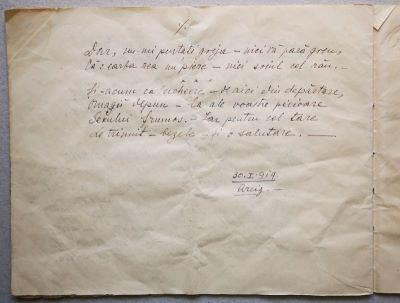 Dar, nu-mi purtați grija – nici vă pară greu,
Că: earba rea nu piere – nici soiul cel rău. –
Și-acum ca încheere – d'aici din depărtare,
Omagii depun – la ale voastre picioare
Sexului frumos. – Iar pentru cel tare
Le trimit – bezele – și o salutare. –
30.X.919